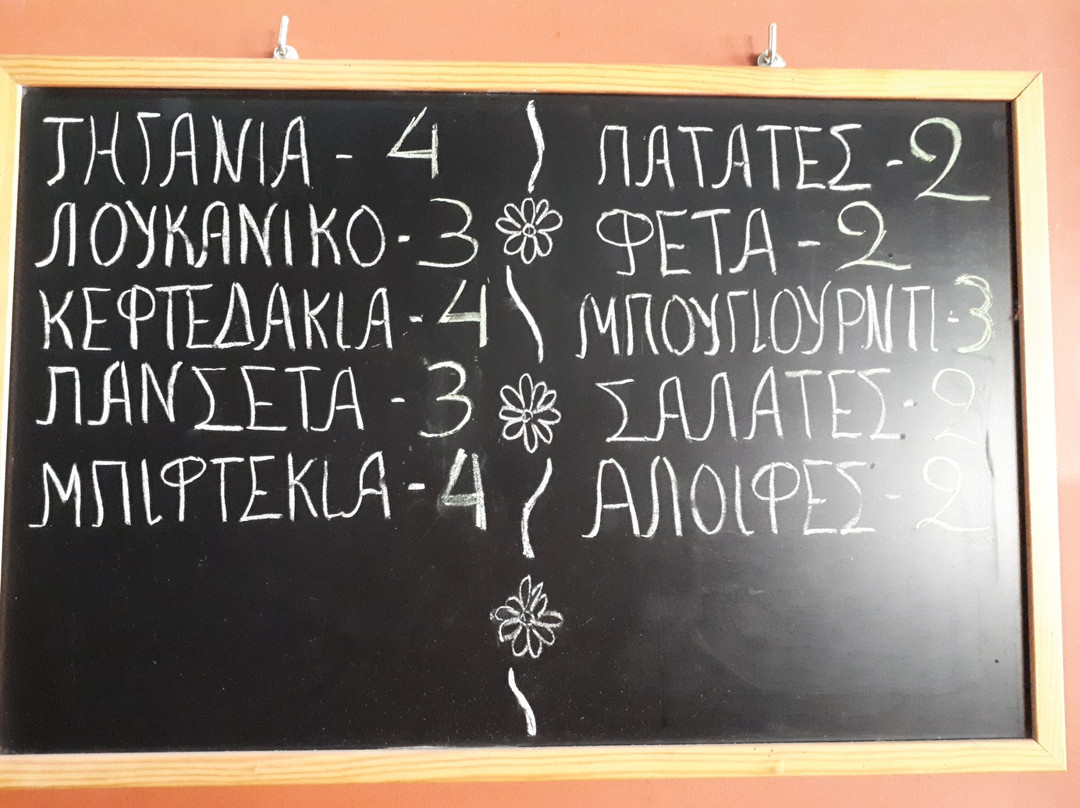 ΤΗΓΑΝΙΑ - 4
ΛΟΥΚΑΝΙΚΟ - 3
ΚΕΦΤΕΔΑΚΙΑ - 4
ΠΑΝΣΕΤΑ - 3
ΜΠΙΦΤΕΚΙΑ - 4
ΠΑΤΑΤΕΣ - 2
ΦΕΤΑ - 2
ΜΠΟΥΓΙΟΥΡΝΤΙ - 3
ΣΑΛΑΤΕΣ - 2
ΑΛΟΙΦΕΣ - 2